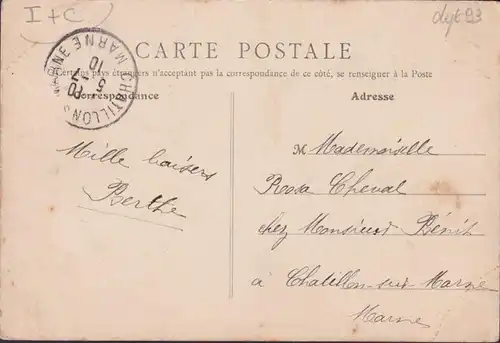 I + C
CARTE POSTALE
Certains pays étrangers n'acceptant pas la correspondance de ce côté, se renseigner à la Poste
CHATILLON S MARNE MARNE
10
5 -7
07
Correspondance
Mille baisers
Berthe
Adresse
M Mademoiselle
Rosa Cheval
chez Monsieur Bénit
à Chatillon-sur-Marne
Marne